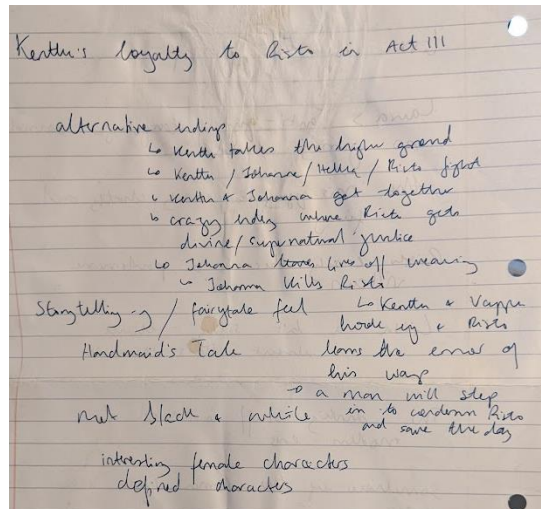 Kerttu's loyalty to Risto in Act III
alternative endings
↳ Kerttu takes the higher ground
↳ Kerttu / Johanna / Hellu / Risto fight
↳ Kerttu & Johanna get together
↳ crazy ending where Risto gets
divine / supernatural justice
↳ Johanna lives off weaving
↳ Johanna kills Risto
Storytelling -ey / fairytale feel
↳ Kerttu & Vappu
hook up & Risto
Handmaid's Tale
learns the error of
his ways
→ a man will step
not black & white
in to condemn Risto
and save the day
interesting female characters
defined characters